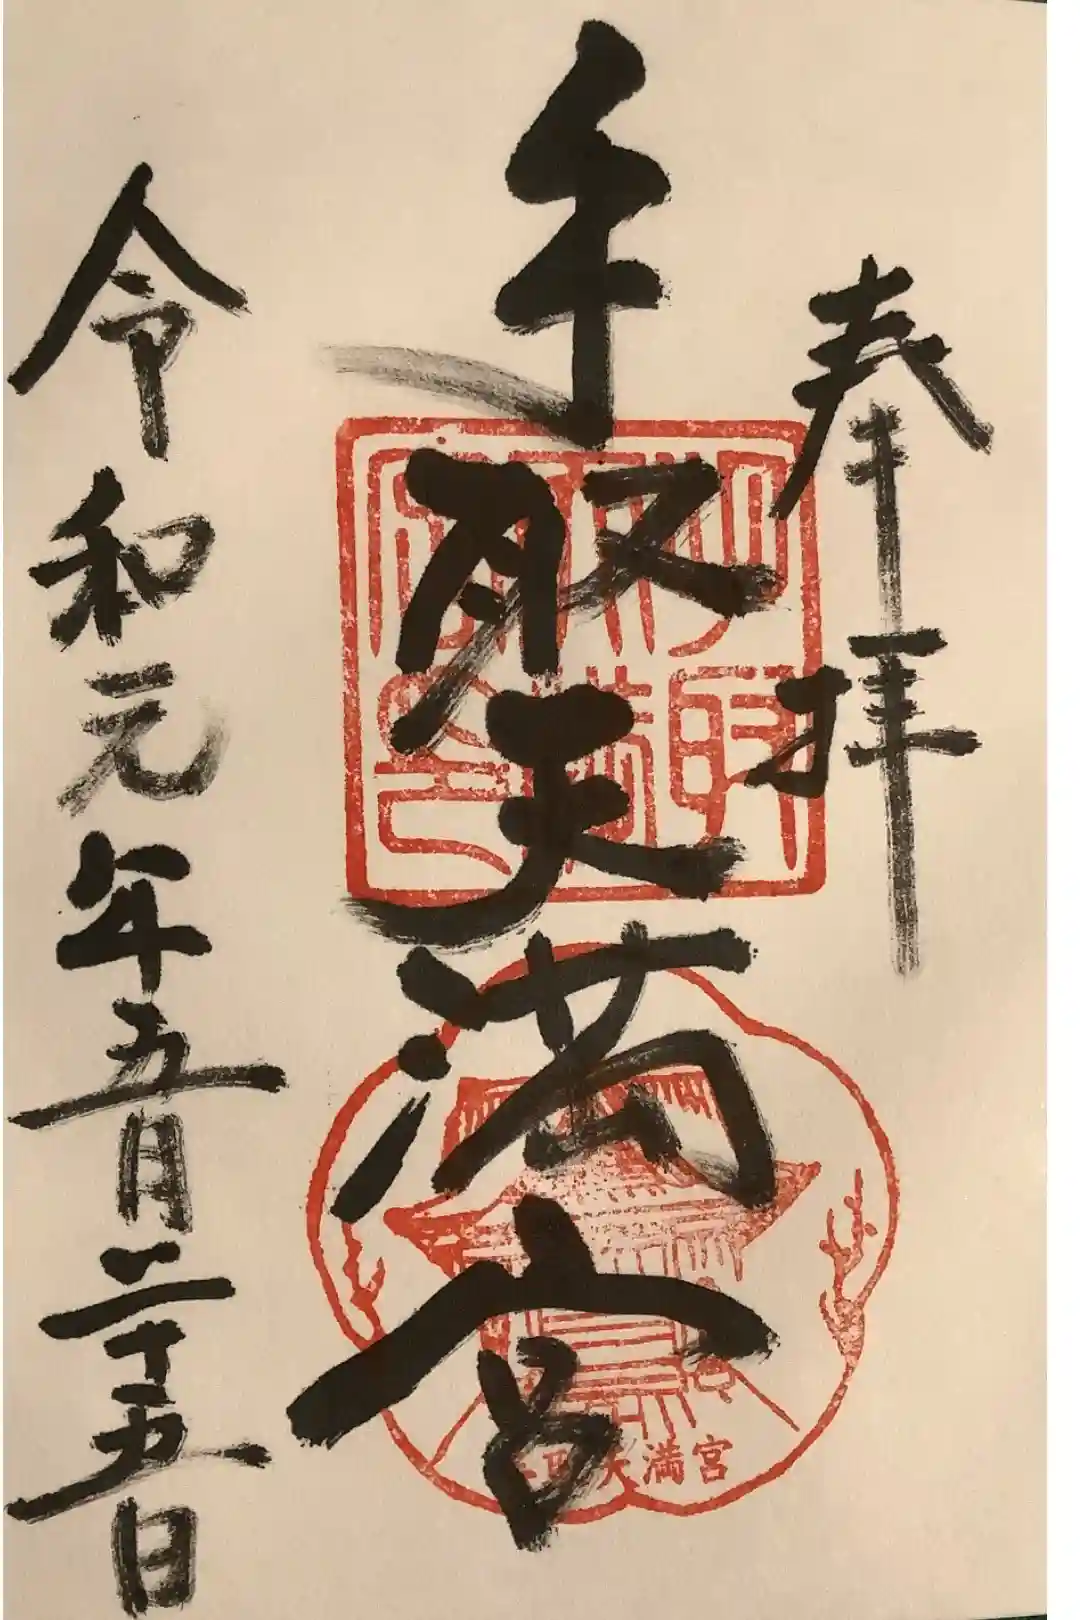 奉拝
手取天満宮
令和元年五月二十五日
手取天満宮